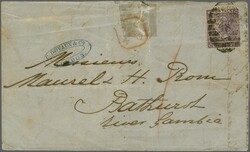 Messieurs
Maurel & H. Prom
Bathurst
River Gambia